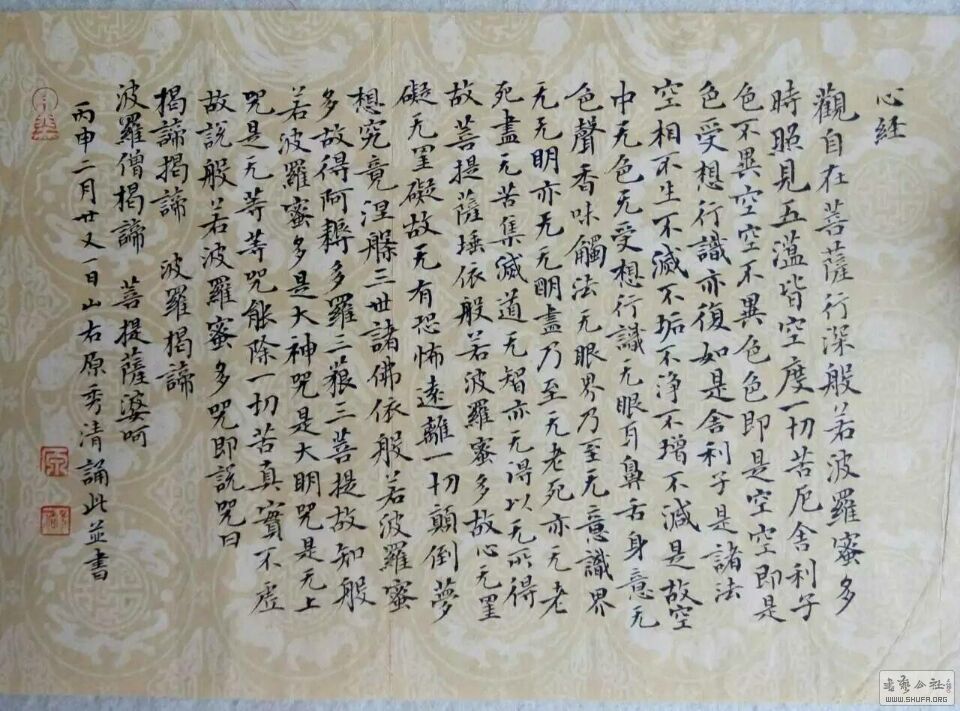 心経
觀自在菩薩行深般若波羅蜜多
時照見五蘊皆空度一切苦厄舍利子
色不異空空不異色色即是空空即是
色受想行識亦復如是舍利子是諸法
空相不生不滅不垢不淨不增不減是故空
中无色无受想行識无眼耳鼻舌身意无
色聲香味觸法无眼界乃至无意識界
无无明亦无无明盡乃至无老死亦无老
死盡无苦集滅道无智亦无得以无所得
故菩提薩埵依般若波羅蜜多故心无罣
礙无罣礙故无有恐怖遠離一切顛倒夢
想究竟涅槃三世諸佛依般若波羅蜜
多故得阿耨多羅三藐三菩提故知般
若波羅蜜多是大神咒是大明咒是无上
咒是无等等咒能除一切苦真實不虛
故說般若波羅蜜多咒即說咒曰
揭諦揭諦 波羅揭諦
波羅僧揭諦 菩提薩婆呵
丙申二月廿又一日山右原秀清誦此並書
WWW.SHUFA.ORG